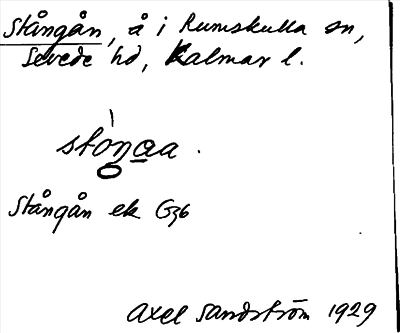 Stångån, å i Rumskulla sn,
Sevede hd, Kalmar l.
stònaa.
Stångån ek G36
Axel Sandström 1929